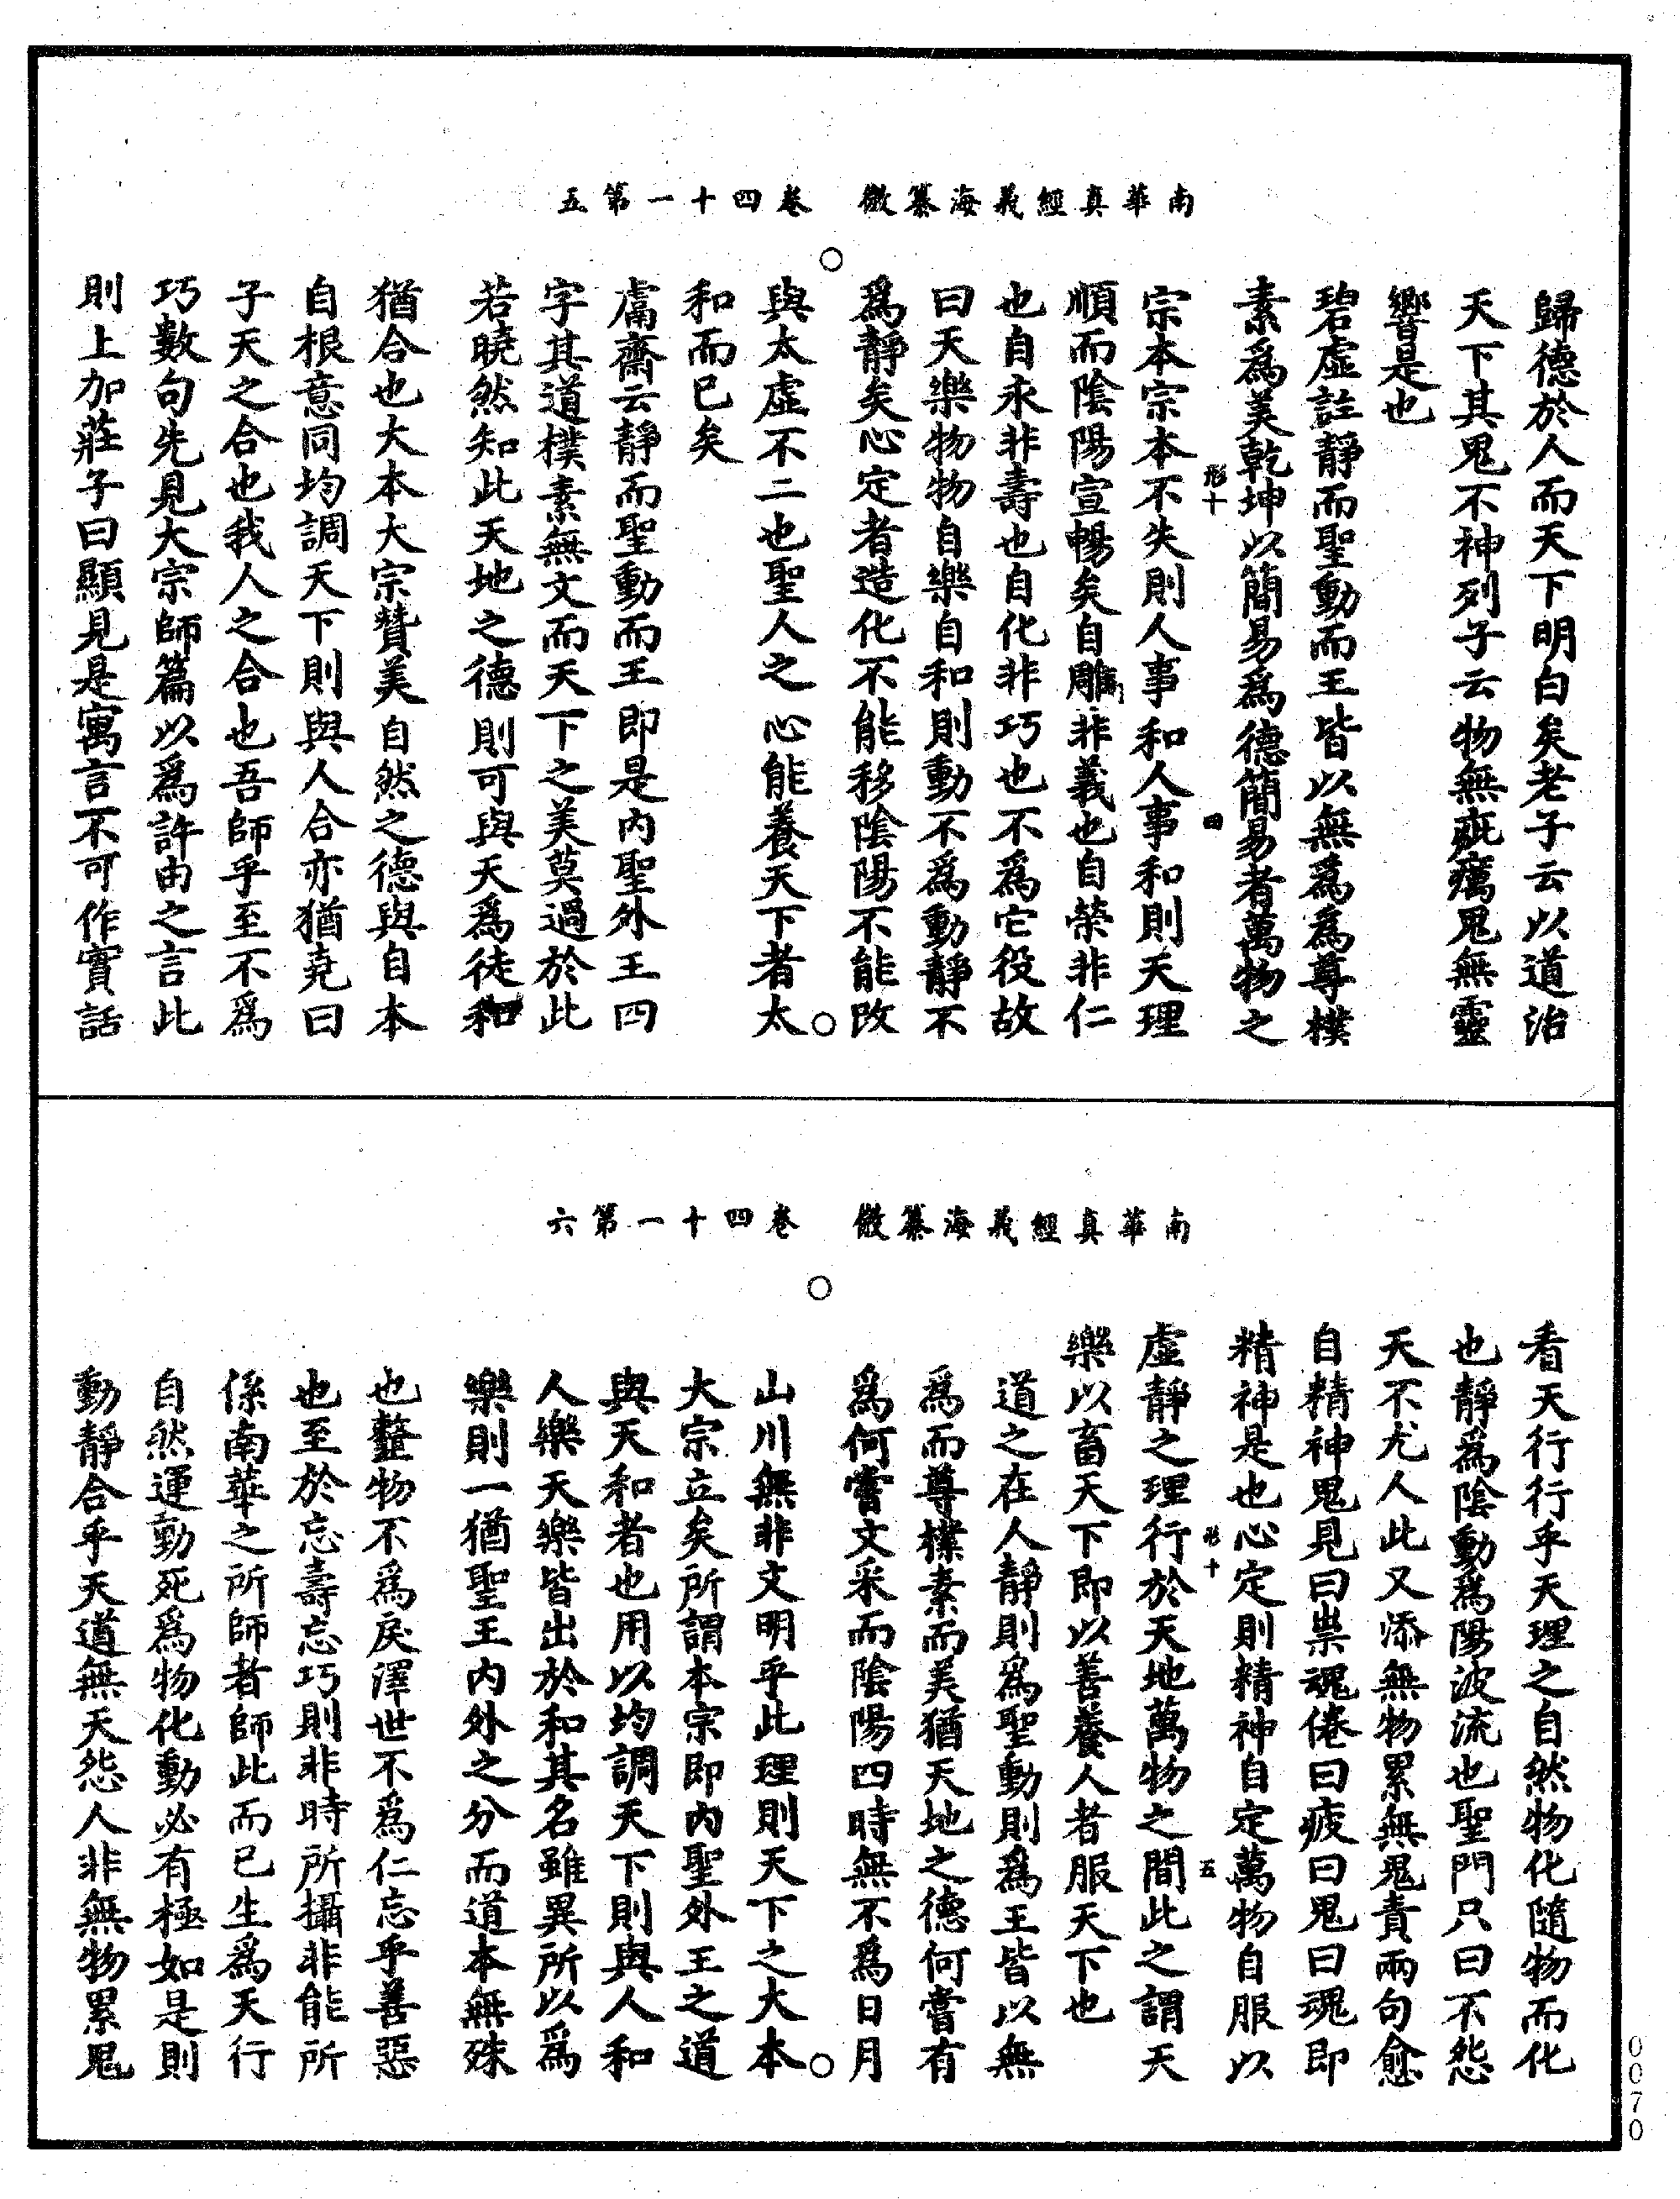 南華真經義海纂微　卷四十一第五
歸德於人而天下明白矣老子云以道治
天下其鬼不神列子云物無疵癘鬼無靈
響是也
碧虛註靜而聖動而王皆以無為為尊樸
素為美乾坤以簡易為德簡易者萬物之
形十　四
宗本宗本不失則人事和人事和則天理
順而陰陽宣暢矣自雕非義也自榮非仁
也自永非壽也自化非巧也不為它役故
曰天樂物物自樂自和則動不為動靜不
為靜矣心定者造化不能移陰陽不能改
與太虛不二也聖人之心能養天下者太
和而已矣
鬳齋云靜而聖動而王即是內聖外王四
字其道樸素無文而天下之美莫過於此
若曉然知此天地之德則可與天為徒和
猶合也大本大宗贊美自然之德與自本
自根意同均調天下則與人合亦猶堯曰
子天之合也我人之合也吾師乎至不為
巧數句先見大宗師篇以為許由之言此
則上加莊子曰顯見是寓言不可作實話
南華真經義海纂微　卷四十一第六
看天行行乎天理之自然物化隨物而化
也靜為陰動為陽波流也聖門只曰不怨
天不尤人此又添無物累無鬼責兩句愈
自精神鬼見曰祟魂倦曰疲曰鬼曰魂即
精神是也心定則精神自定萬物自服以
形十　五
虛靜之理行於天地萬物之間此之謂天
樂以畜天下即以善養人者服天下也
道之在人靜則為聖動則為王皆以無
為而尊樸素而美猶天地之德何嘗有
為何嘗文采而陰陽四時無不為日月
山川無非文明乎此理則天下之大本
大宗立矣所謂本宗即內聖外王之道
與天和者也用以均調天下則與人和
人樂天樂皆出於和其名雖異所以為
樂則一猶聖王內外之分而道本無殊
也䪠物不為戾澤世不為仁忘乎善惡
也至於忘壽忘巧則非時所攝非能所
係南華之所師者師此而已生為天行
自然運動死為物化動必有極如是則
動靜合乎天道無天怨人非無物累鬼
0070